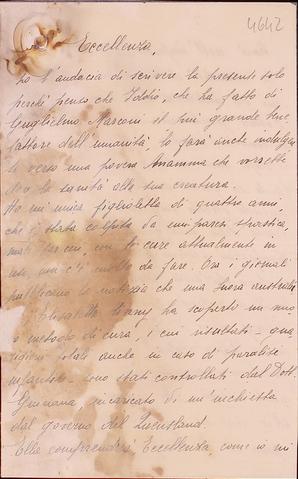 4642
Eccellenza,
ho l'audacia di scrivere la presente solo
perchè penso che Iddio, che ha fatto di
Guglielmo Marconi il più grande bene-
fattore dell'umanità, lo farà anche indulgen
te verso una povera mamma che vorrebbe
dare la sanità alla sua creatura.
Ho un'unica figlioletta di quattro anni
che è stata colpita da emiparesi spastica,
con le cure attualmente in
uso, non c'è molto da fare. Ora i giornali
pubblicano la notizia che una suora australia
Elisabetta Kenny, ha scoperto un nuo
o metodo di cura, i cui risultati - gua
rigioni totali anche in caso di paralisi
infantile - sono stati controllati dal Dott.
incaricato di un'inchiesta
dal governo del Queensland.
Ella comprenderà, Eccellenza, come io mi